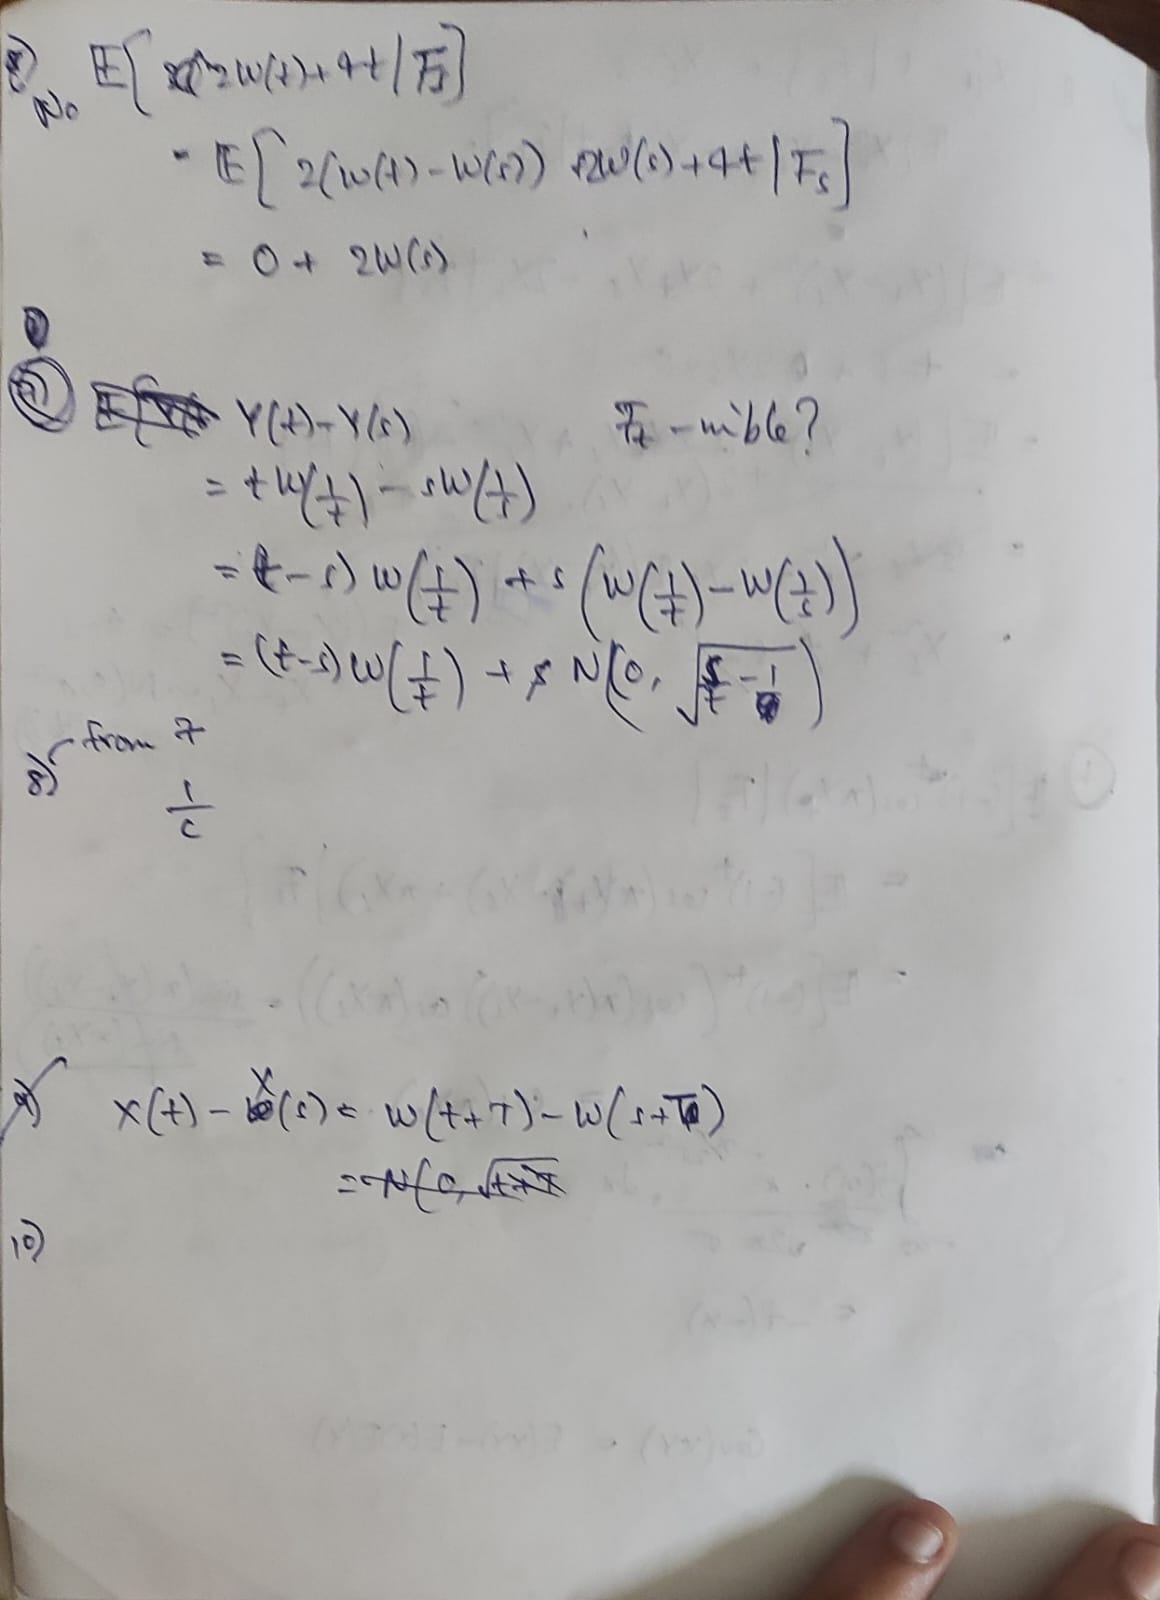 8)
No
E[ 2W(t)+4t | Fs]
= E[ 2(W(t)-W(s)) 2W(s)+4t | Fs]
= 0 + 2W(s)
7) Y(t)-Y(s) Ft - mible?
= tW(1/t) - sW(1/t)
= (t-s) W(1/t) + s (W(1/t) - W(1/s))
= (t-s) W(1/t) + s N(0, √
8) from 7
1/c
9) X(t) - X(s) = W(t+T) - W(s+T)
= N(0, √
10)